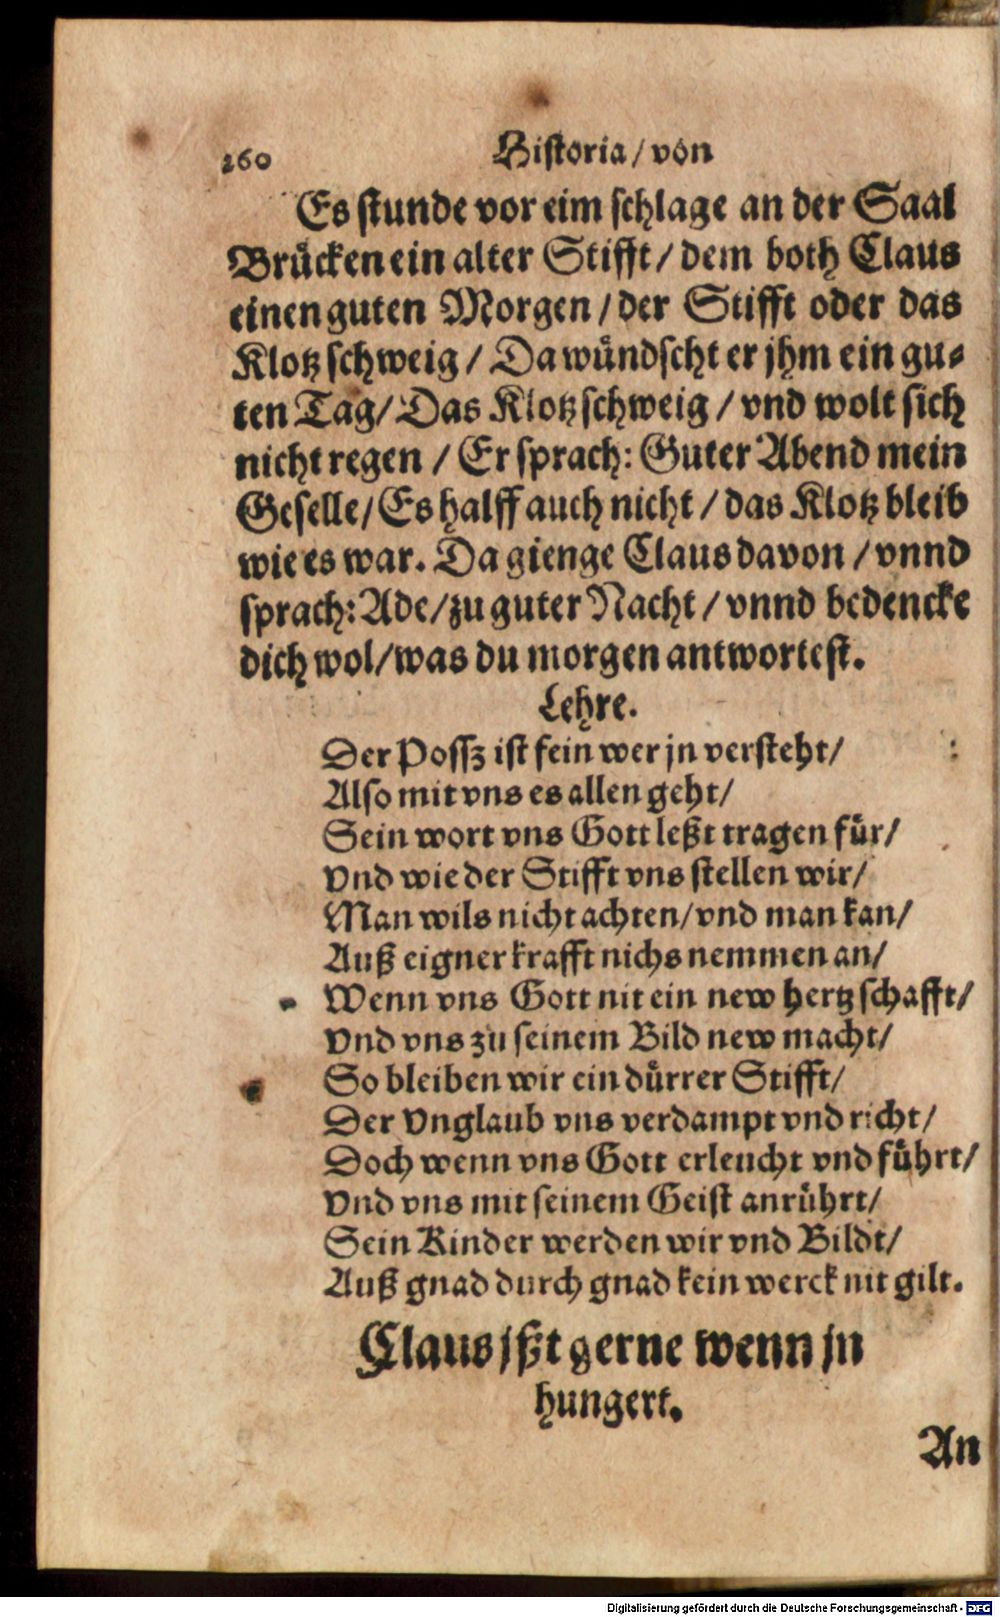 260 Historia/ von
Es stunde vor eim schlage an der Saal
Bruͤcken ein alter Stifft/ dem both Claus
einen guten Morgen/ der Stifft oder das
Klotz schweig/ Da wuͤndscht er jhm ein gu⸗
ten Tag/ Das Klotz schweig/ vnd wolt sich
nicht regen/ Er sprach: Guter Abend mein
Geselle/ Es halff auch nicht/ das Klotz bleib
wie es war. Da gienge Claus davon/ vnnd
sprach: Ade/ zu guter Nacht/ vnnd bedencke
dich wol/ was du morgen antwortest.
Lehre.
Der Possz ist fein wer jn versteht/
Also mit vns es allen geht/
Sein wort vns Gott leßt tragen fuͤr/
Vnd wie der Stifft vns stellen wir/
Man wils nicht achten/ vnd man kan/
Auß eigner krafft nichs nemmen an/
Wenn vns Gott nit ein new hertz schafft/
Vnd vns zu seinem Bild new macht/
So bleiben wir ein duͤrrer Stifft/
Der Vnglaub vns verdampt vnd richt/
Doch wenn vns Gott erleucht vnd fuͤhrt/
Vnd vns mit seinem Geist anruͤhrt/
Sein Kinder werden wir vnd Bildt/
Auß gnad durch gnad kein werck nit gilt.
Claus jßt gerne wenn jn
hungert.
An
Digitalisierung gefördert durch die Deutsche Forschungsgemeinschaft - DFG